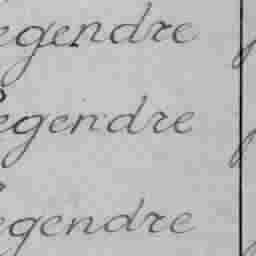 egendre
egendre
egendre